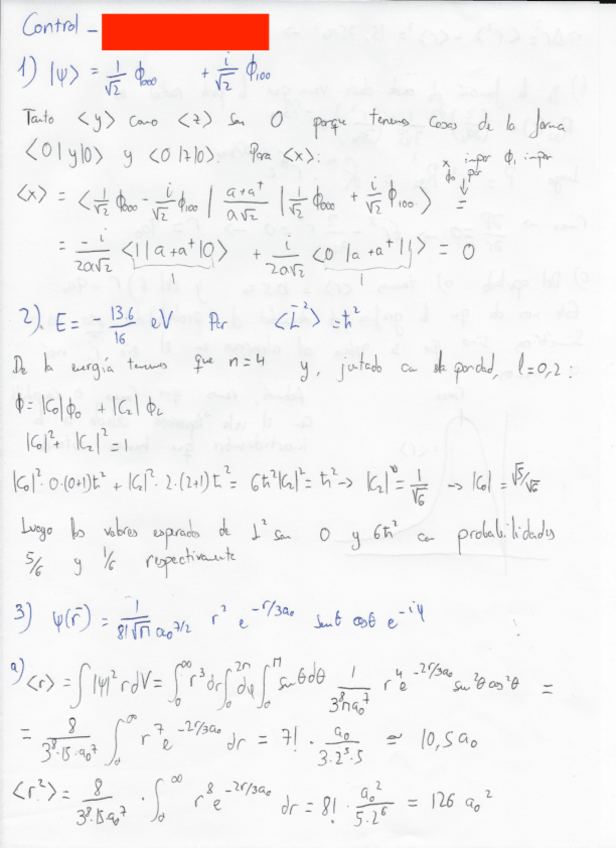 Control -
1) |ψ> = 1/√2 ϕ000 + i/√2 ϕ100
Tanto <y> como <z> son 0 porque tenemos cosas de la forma
<0|y|0> y <0|z|0>. Para <x>:
x impar ϕ1 impar
ϕ0 par
<x> = <1/√2 ϕ000 - i/√2 ϕ100 | a+a†/α√2 | 1/√2 ϕ000 + i/√2 ϕ100> =
= -i/2α√2 <1|a+a†|0> + i/2α√2 <0|a+a†|1> = 0
1 1
2). E = -13.6/16 eV Par <L²> = ħ²
De la energía tenemos que n=4 y, juntado con la paridad, l=0,2:
ϕ = |C0|ϕ0 + |C2|ϕ2
|C0|² + |C2|² = 1
|C0|²·0·(0+1)ħ² + |C2|²·2·(2+1)ħ² = 6ħ²|C2|² = ħ² → |C2| = 1/√6 → |C0| = √5/√6
Luego los valores esperados de L² son 0 y 6ħ² con probabilidades
5/6 y 1/6 respectivamente
3) ψ(r) = 1/81√π a0^7/2 r² e^-r/3a0 senθ cosθ e^-iφ
a) <r> = ∫|ψ|² r dV = ∫0^∞ r³ dr ∫0^2π dφ ∫0^π senθ dθ 1/3⁸πa0⁷ r⁴ e^-2r/3a0 sen²θ cos²θ =
= 8/3⁸·15·a0⁷ ∫0^∞ r⁷ e^-2r/3a0 dr = 7! · a0/3·2⁵·5 ≃ 10,5 a0
<r²> = 8/3⁸·15·a0⁷ · ∫0^∞ r⁸ e^-2r/3a0 dr = 8! · a0²/5·2⁶ = 126 a0²